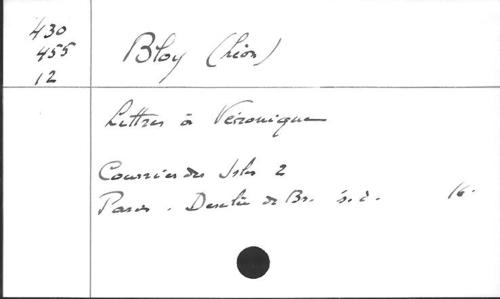 430
455
12
Bloy (Léon)
Lettres à Véronique
Courrier des Isles 2
Paris. Desclée de Br. s.d. 16.